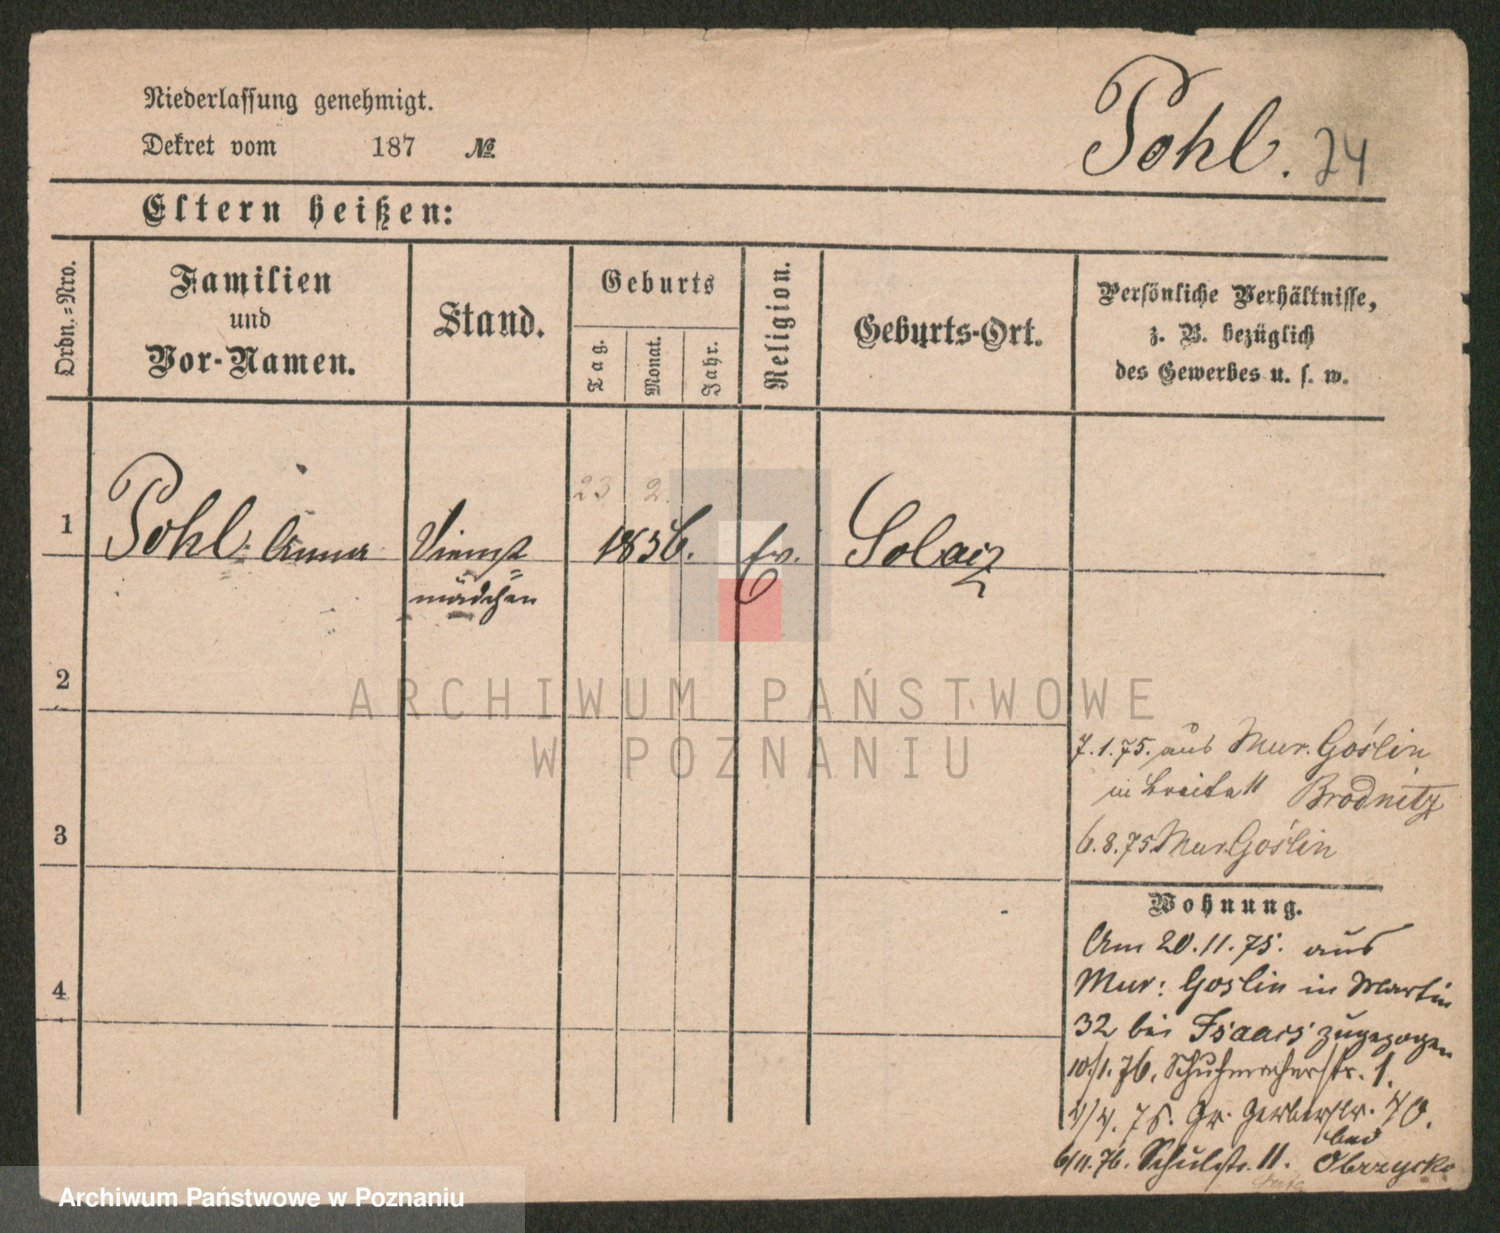 Niederlassung genehmigt.
Dekret vom 187 №
Pohl. 24
Eltern heißen:
Ordn.=Nro.
Familien
und
Vor-Namen.
Stand.
Geburts
Tag.
Monat.
Jahr.
Religion.
Geburts-Ort.
Persönliche Verhältnisse,
z. B. bezüglich
des Gewerbes u. s. w.
23 2.
1 Pohl Anna Dienst= 1856. Ev. Solacz
mädchen
2
3
4
7.1.75. aus Mur. Goślin
in Breite 11 Brodnitz
6.8.75 Mur. Goślin
Wohnung.
Am 20.11.75. aus
Mur: Goslin in Martin
32 bei Isaacs zugezogen
10/1.76. Schuhmacherstr. 1.
Gr. Gerberstr. 40.
6/11.76. Schulstr. 11. bei
Obrzycko
ARCHIWUM PAŃSTWOWE
W POZNANIU
Archiwum Państwowe w Poznaniu